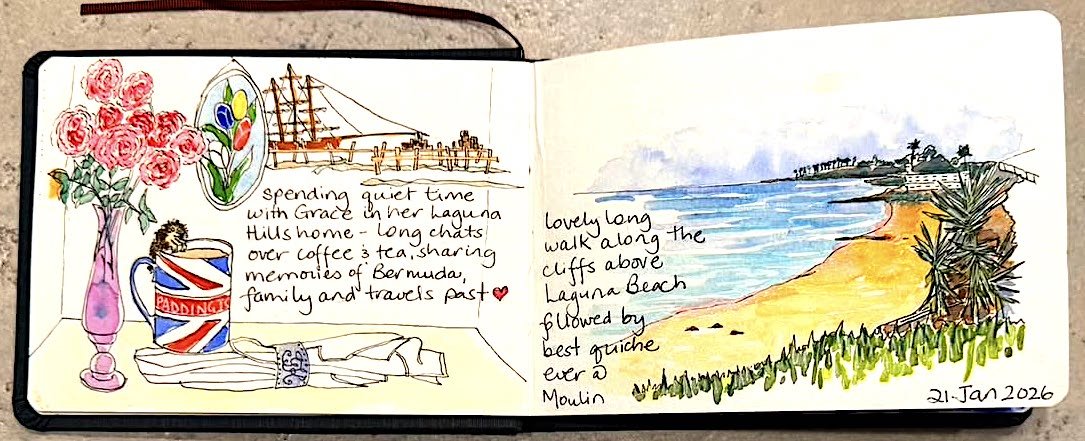 spending quiet time
with Grace in her Laguna
Hills home - long chats
over coffee & tea, sharing
memories of Bermuda,
family and travels past ♥
PADDINGTO
lovely long
walk along the
cliffs above
Laguna Beach
followed by
best quiche
ever @
Moulin
21. Jan 2026